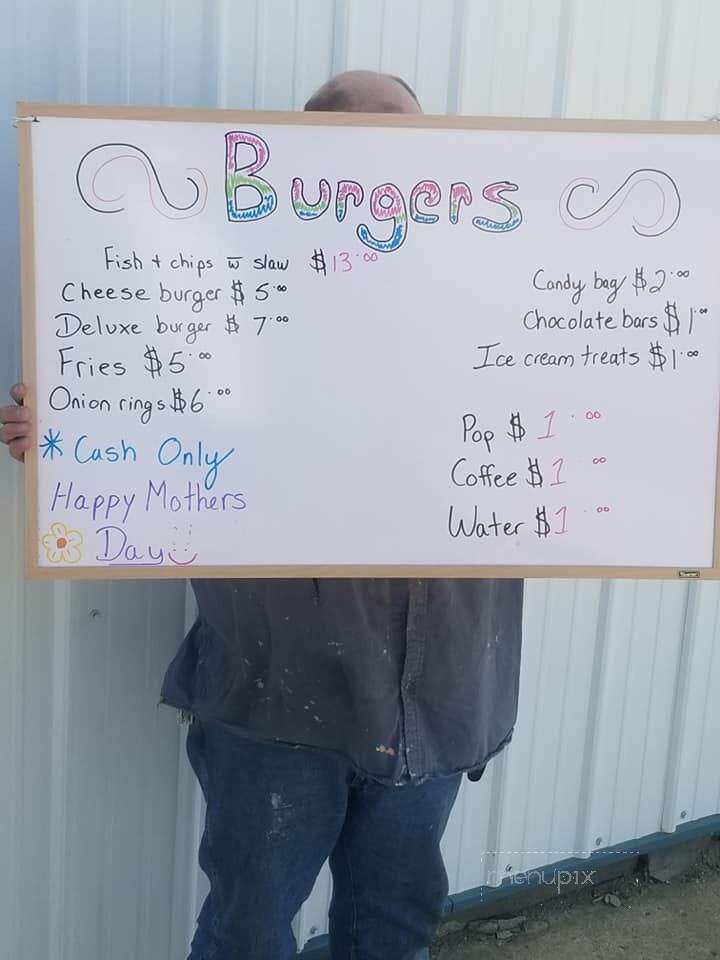 Burgers
Fish + chips w̅ slaw $13.00
Cheese burger $5.00
Deluxe burger $ 7.00
Fries $5.00
Onion rings $6.00
* Cash Only
Happy Mothers
Day
Candy bag $2.00
Chocolate bars $1.00
Ice cream treats $1.00
Pop $ 1.00
Coffee $1 00
Water $1.00
menupix